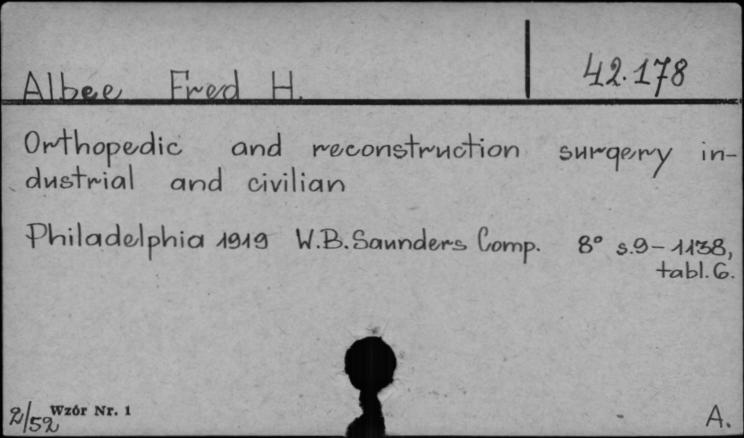 Albee Fred H.
42.178
Orthopedic and reconstruction surgery in-
dustrial and civilian
Philadelphia 1919 W.B. Saunders Comp. 8° s.9-1138,
tabl. 6.
2/52
Wzór Nr. 1
A.